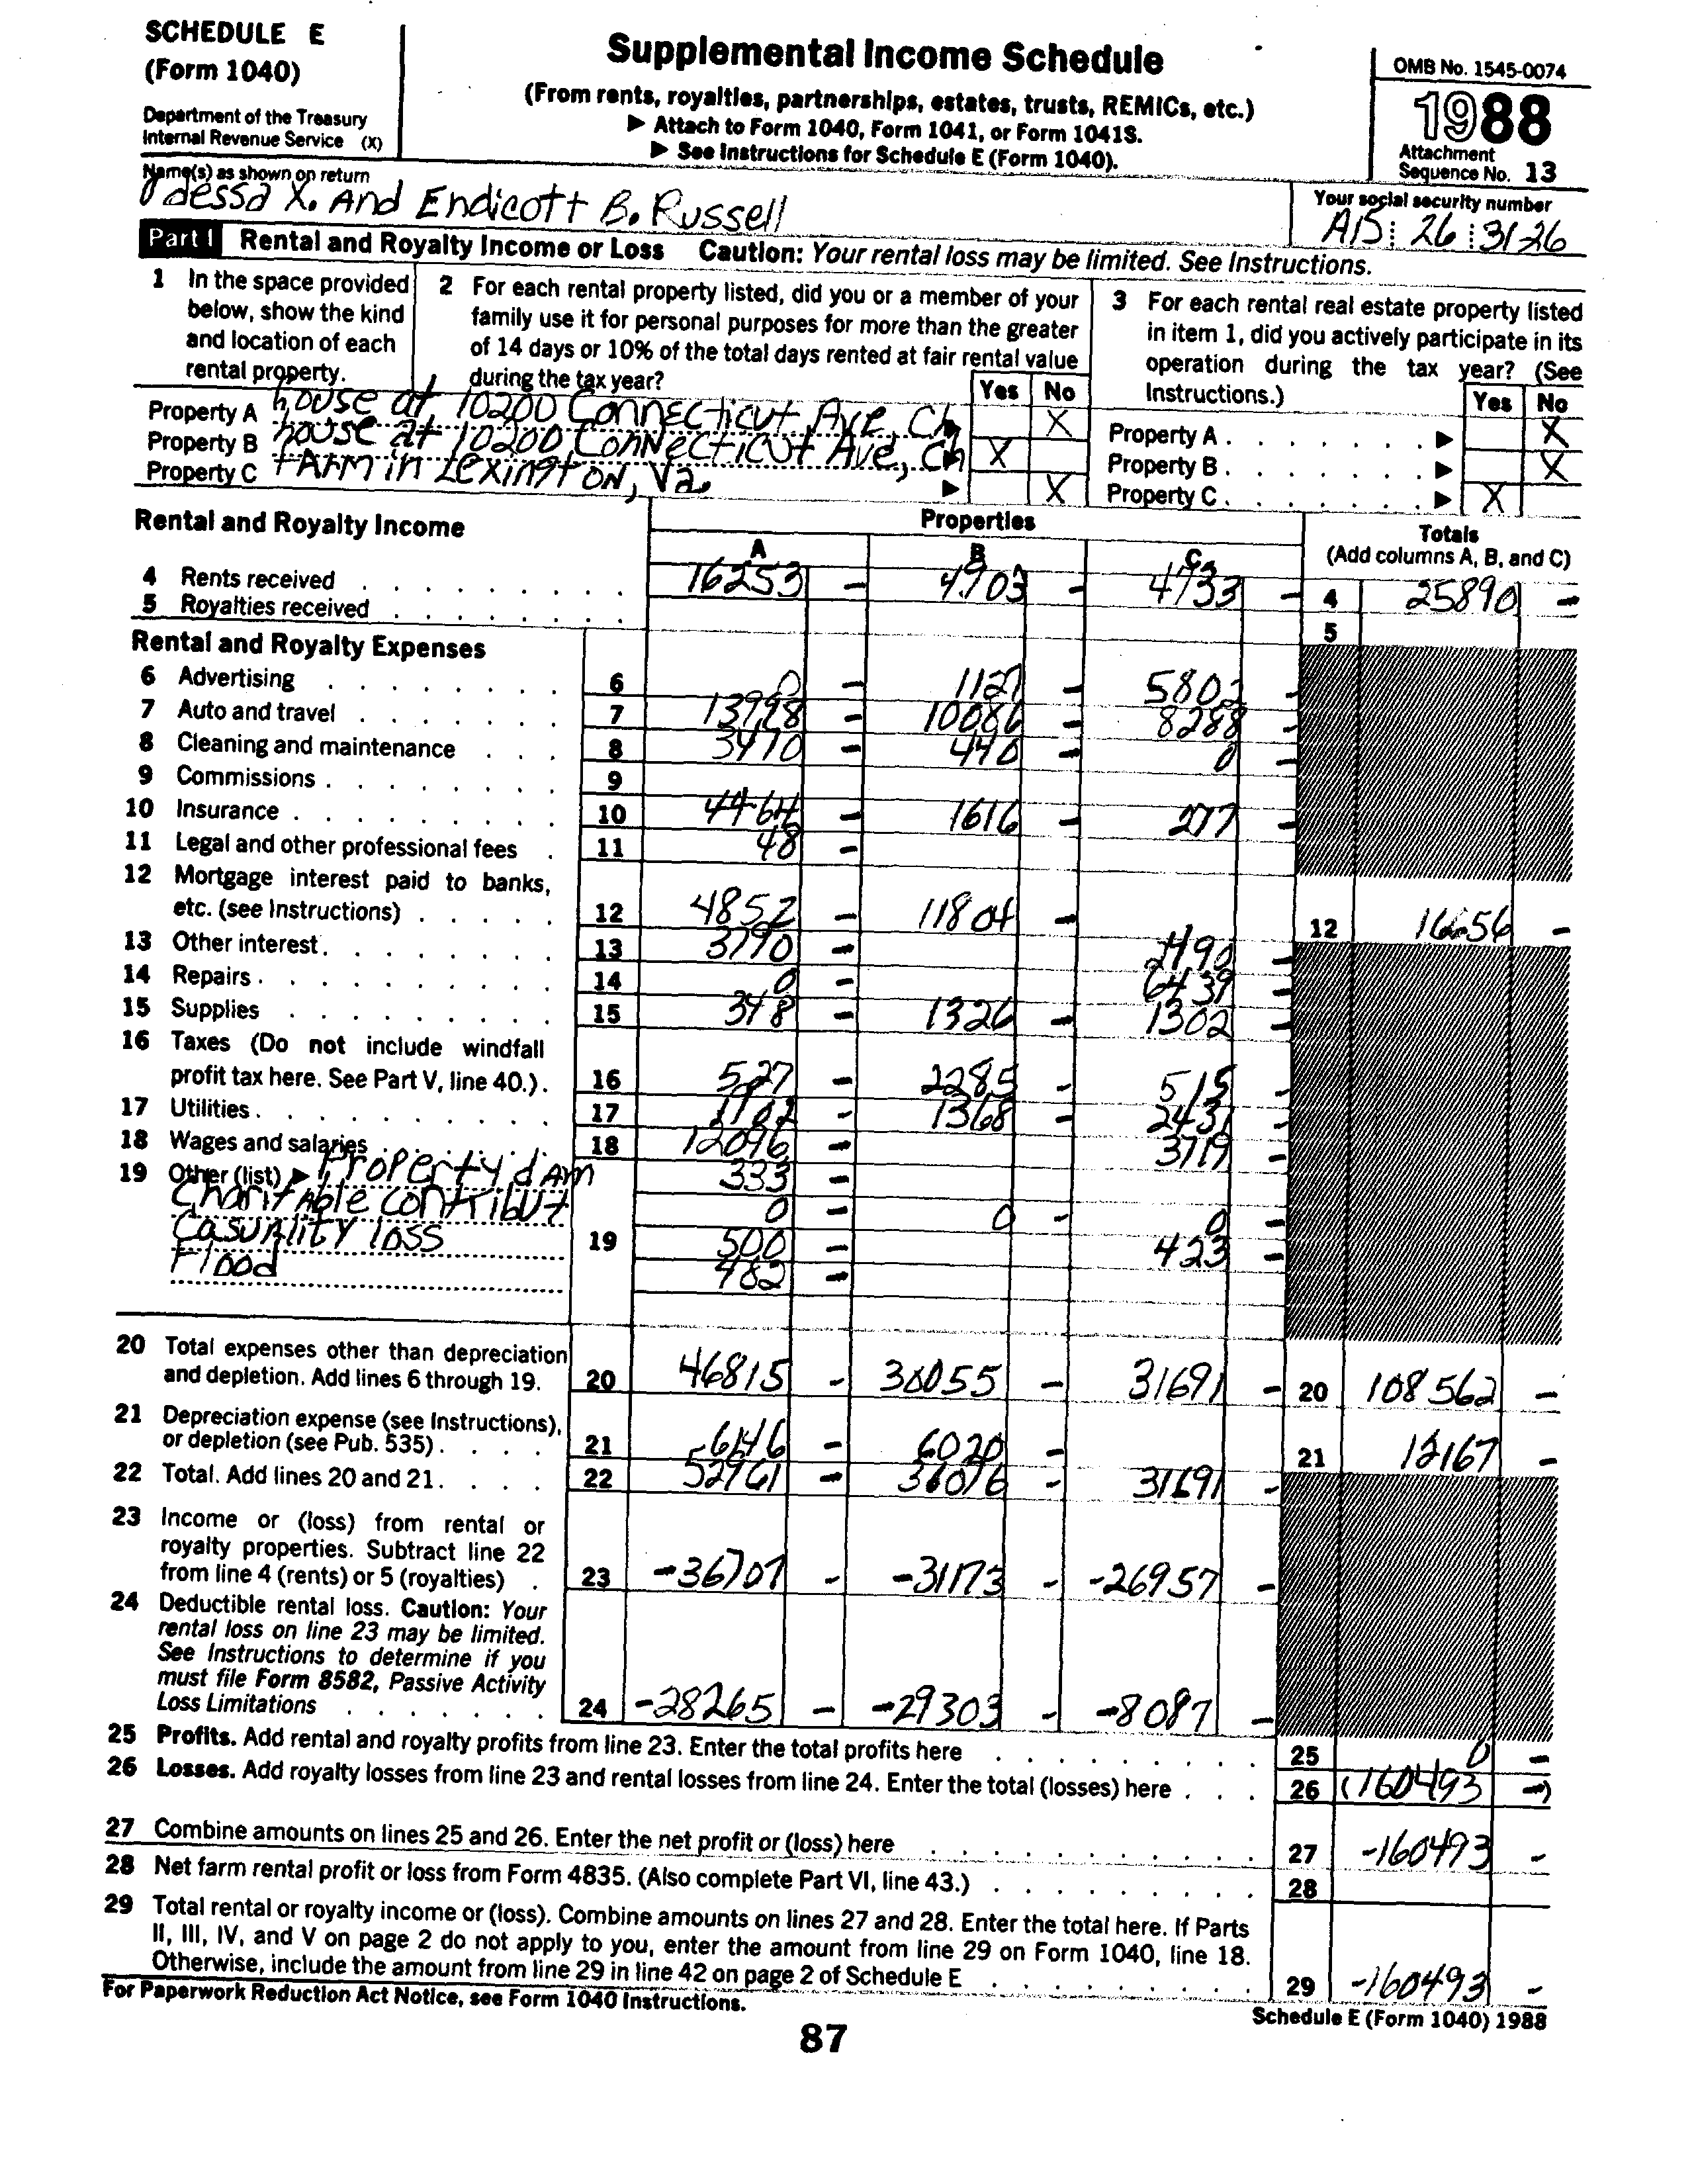 SCHEDULE E
(Form 1040)
Department of the Treasury
Internal Revenue Service (X)
Supplemental Income Schedule
(From rents, royalties, partnerships, estates, trusts, REMICs, etc.)
▶ Attach to Form 1040, Form 1041, or Form 1041S.
▶ See Instructions for Schedule E (Form 1040).
OMB No. 1545-0074
1988
Attachment
Sequence No. 13
Name(s) as shown on return
Odessa X. And Endicott B. Russell
Your social security number
A15 26 3126
Part I Rental and Royalty Income or Loss Caution: Your rental loss may be limited. See Instructions.
1 In the space provided below, show the kind and location of each rental property.
2 For each rental property listed, did you or a member of your family use it for personal purposes for more than the greater of 14 days or 10% of the total days rented at fair rental value during the tax year?
Yes No
3 For each rental real estate property listed in item 1, did you actively participate in its operation during the tax year? (See Instructions.)
Yes No
Property A house at 10200 Connecticut Ave, Ch ▶ X Property A . . . . . . . ▶ X
Property B house at 10200 Connecticut Ave, Ch ▶ X Property B . . . . . . . ▶ X
Property C FARM in Lexington, Va ▶ X Property C . . . . . . . ▶ X
Rental and Royalty Income
Properties
A B C
Totals
(Add columns A, B, and C)
4 Rents received 16253 - 4903 - 4733 - 4 25890 -
5 Royalties received 5
Rental and Royalty Expenses
6 Advertising 6 0 - 1127 - 5802 -
7 Auto and travel 7 13998 - 10086 - 8288 -
8 Cleaning and maintenance 8 3470 - 440 - 0 -
9 Commissions 9
10 Insurance 10 4464 - 1616 - 277 -
11 Legal and other professional fees 11 48 -
12 Mortgage interest paid to banks, etc. (see Instructions) 12 4852 - 11804 - 12 16656 -
13 Other interest 13 3790 - 2490 -
14 Repairs 14 0 - 6439 -
15 Supplies 15 348 - 1326 - 1302 -
16 Taxes (Do not include windfall profit tax here. See Part V, line 40.) 16 527 - 2285 - 515 -
17 Utilities 17 - 1368 - 2431 -
18 Wages and salaries 18 12096 - 3719 -
19 Other (list) ▶ Property dAm 333 -
Charitable contribut 0 - 0 - 0 -
Casuality loss 19 500 - 423 -
Flood 482 -
20 Total expenses other than depreciation and depletion. Add lines 6 through 19. 20 46815 - 30055 - 31691 - 20 108562 -
21 Depreciation expense (see Instructions), or depletion (see Pub. 535) 21 6146 - 6020 - 21 12167 -
22 Total. Add lines 20 and 21 22 52961 - 36076 - 31691 -
23 Income or (loss) from rental or royalty properties. Subtract line 22 from line 4 (rents) or 5 (royalties) 23 -36707 - -31173 - -26957 -
24 Deductible rental loss. Caution: Your rental loss on line 23 may be limited. See Instructions to determine if you must file Form 8582, Passive Activity Loss Limitations 24 -28265 - -29303 - -8087 -
25 Profits. Add rental and royalty profits from line 23. Enter the total profits here 25 0 -
26 Losses. Add royalty losses from line 23 and rental losses from line 24. Enter the total (losses) here 26 (160493 -)
27 Combine amounts on lines 25 and 26. Enter the net profit or (loss) here 27 -160493 -
28 Net farm rental profit or loss from Form 4835. (Also complete Part VI, line 43.) 28
29 Total rental or royalty income or (loss). Combine amounts on lines 27 and 28. Enter the total here. If Parts II, III, IV, and V on page 2 do not apply to you, enter the amount from line 29 on Form 1040, line 18. Otherwise, include the amount from line 29 in line 42 on page 2 of Schedule E 29 -160493 -
For Paperwork Reduction Act Notice, see Form 1040 Instructions.
Schedule E (Form 1040) 1988
87